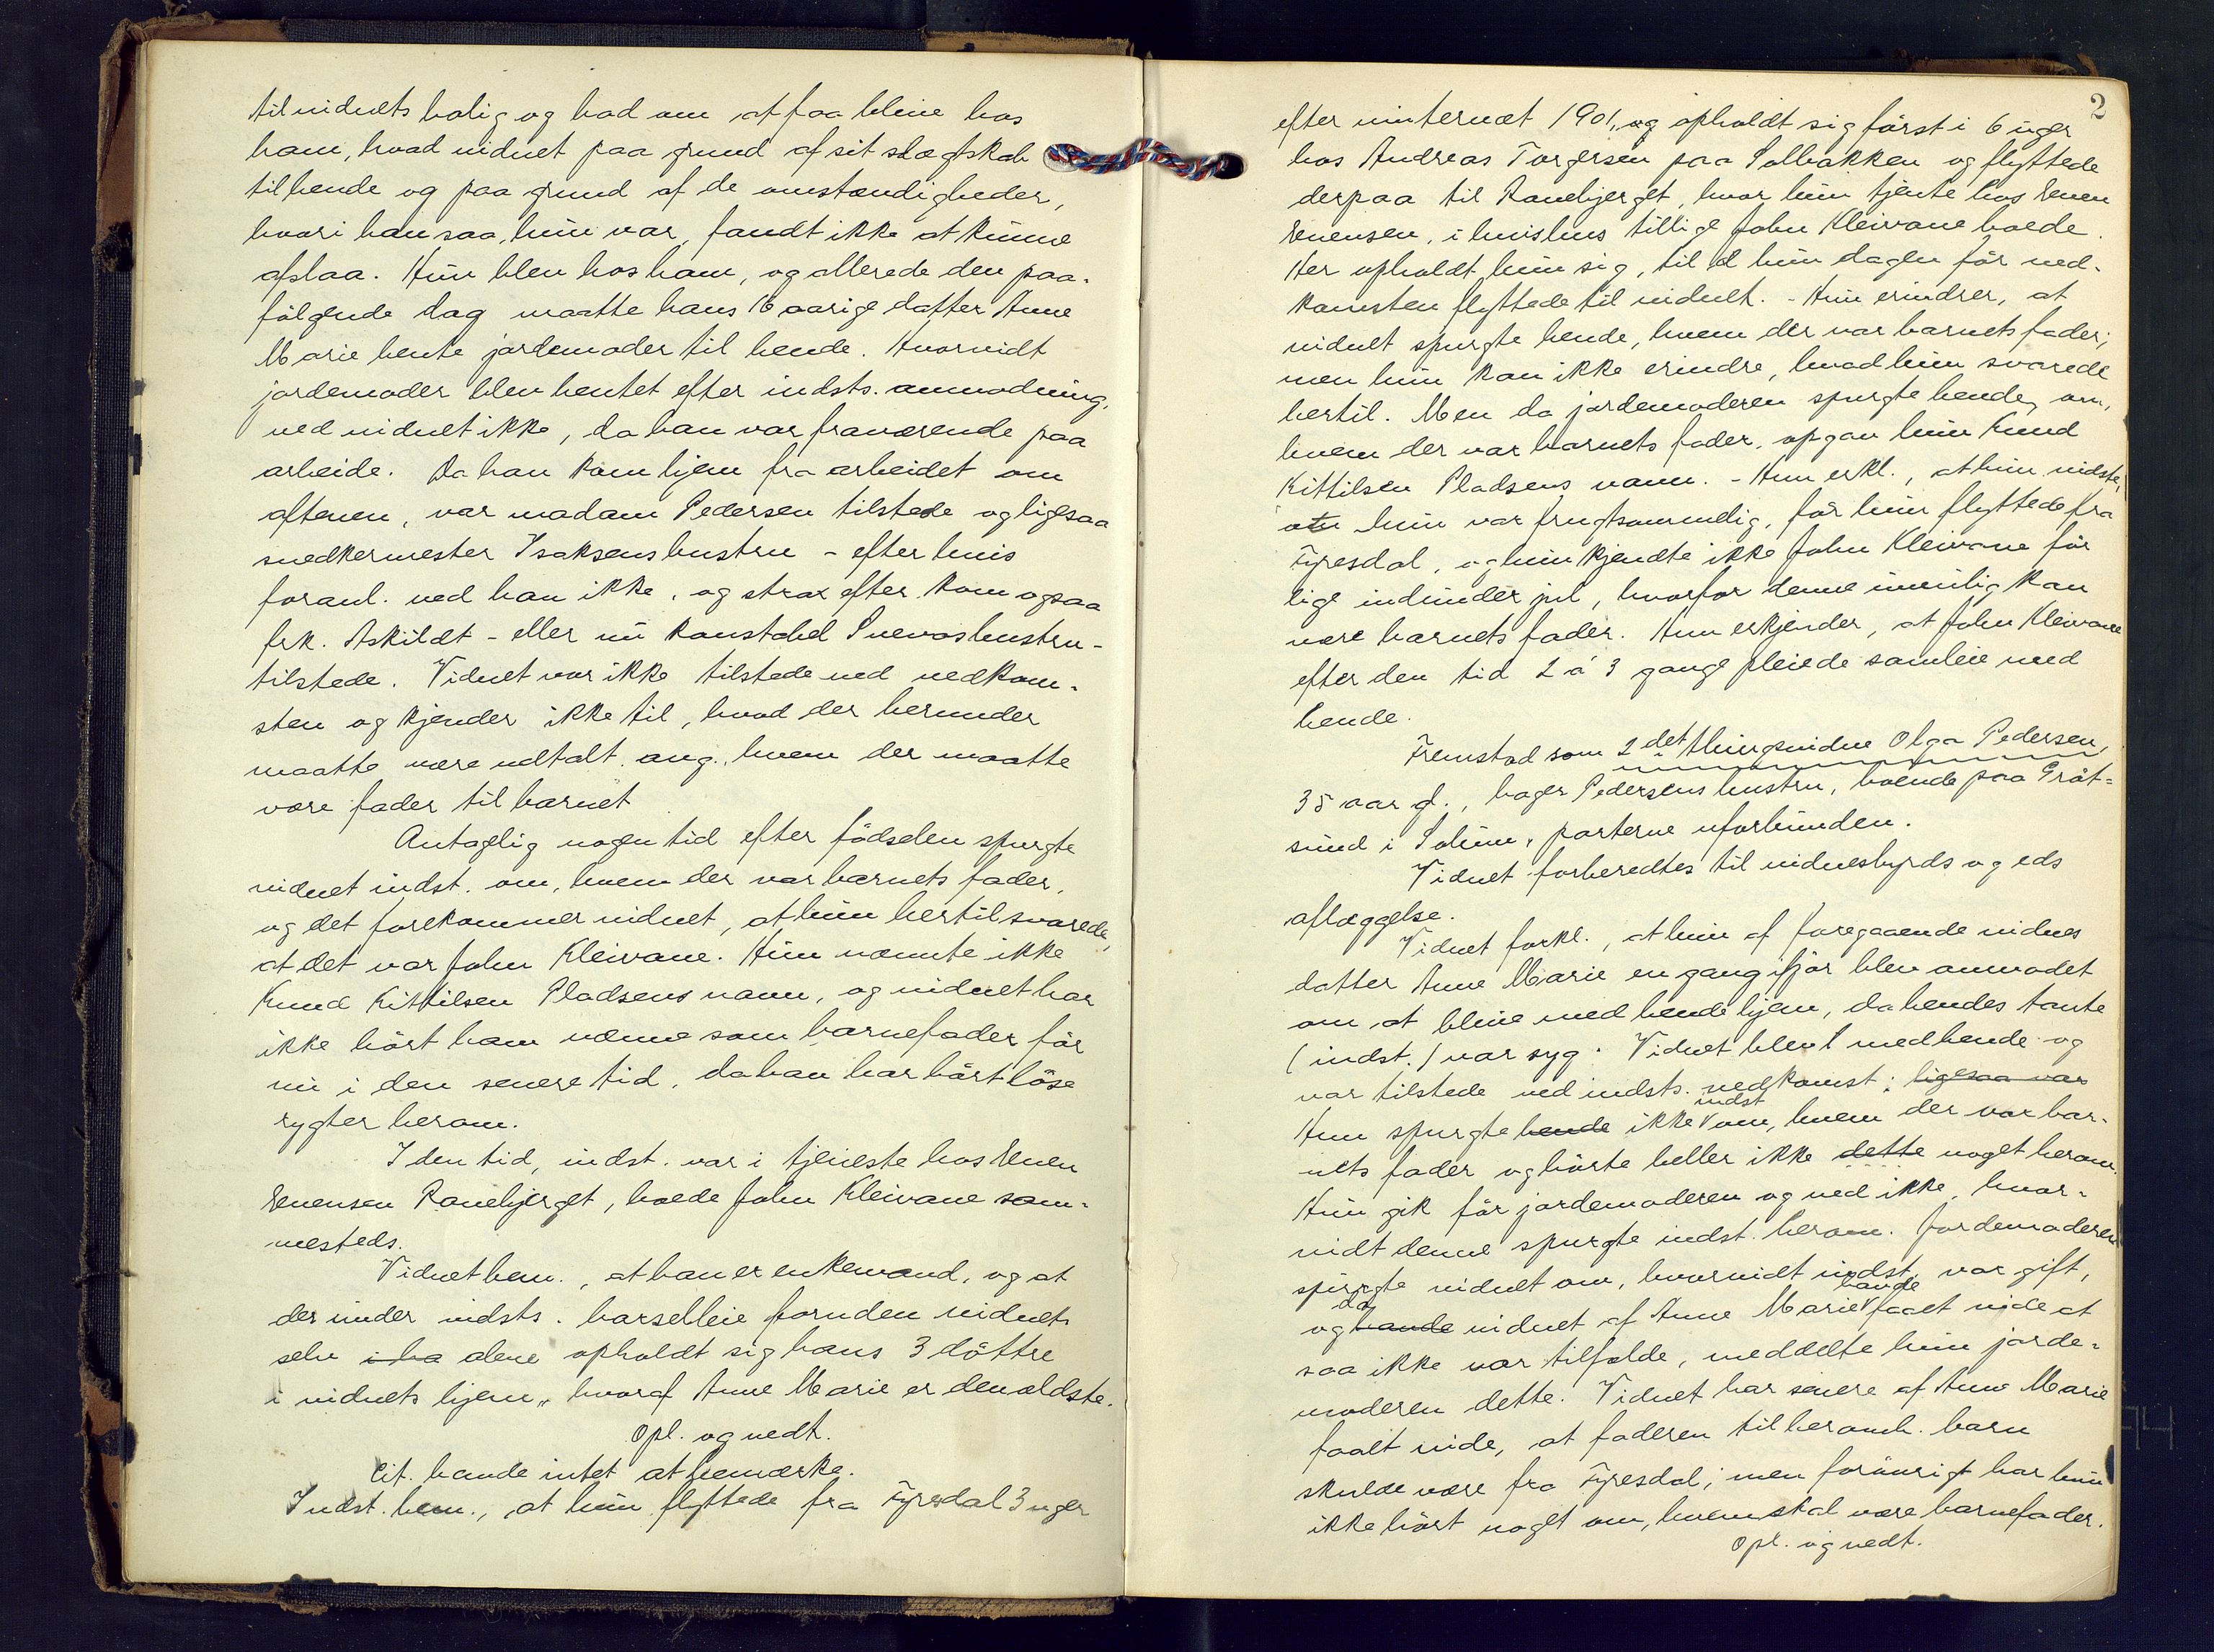 til vidnets bolig og bad om at faa blive hos
ham, hvad vidnet paa grund af sit slægtskab
til hende og paa grund af de omstændigheder,
hvori han saa, hun var, fandt ikke at kunne
afslaa. Hun blev hos ham, og allerede den paa-
følgende dag maatte hans 16 aarige datter Anne
Marie hente jordemoder til hende. Hvorvidt
jordemoder blev hentet efter indsts. anmodning,
ved vidnet ikke, da han var fraværende paa
arbeide. Da han kom hjem fra arbeidet om
aftenen, var madam Pedersen tilstede og ligesaa
snedkermester Isaksens hustru - efter hvis
foranl. ved han ikke, og strax efter kom ogsaa
frk. Askildt - eller nu konstabel Snevas hustru -
tilstede. Vidnet var ikke tilstede ved nedkom-
sten og kjender ikke til, hvad der herunder
maatte være udtalt ang., hvem der maatte
være fader til barnet
Antagelig nogen tid efter fødselen spurgte
vidnet indst. om, hvem der var barnets fader,
og det forekommer vidnet, at hun hertil svarede,
at det var John Kleivane. Hun nævnte ikke
Knud Kittilsen Pladsens navn, og vidnet har
ikke hørt ham nævne som barnefader før
nu i den senere tid, da han har hørt løse
rygter herom.
I den tid, indst. var i tjeneste hos Even
Evensen Ranebjerget, boede John Kleivane sam-
mesteds.
Vidnet bem., at han er enkemand, og at
der under indsts. barselleie foruden vidnets
selv i ha alene opholdt sig hans 3 døttre
i vidnets hjem, hvoraf Anne Marie er den ældste.
Opl. og vedt.
Cit. havde intet at bemærke.
Indst. bem., at hun flyttede fra Fyresdal 3 uger
2
efter vinternat 1901, og opholdt sig først i 6 uger
hos Andreas Torgersen paa Solbakken og flyttede
derpaa til Ranebjerget, hvor hun tjente hos Even
Evensen, i hvis hus tillige John Kleivane boede.
Her opholdt hun sig, til d hun dagen før ned-
komsten flyttede til vidnet. - Hun erindrer, at
vidnet spurgte hende, hvem der var barnets fader;
men hun kan ikke erindre, hvad hun svarede
hertil. Men da jordemoderen spurgte hende, om,
hvem der var barnets fader, opgav hun Knud
Kittilsen Pladsens navn. - Hun erkl., at hun vidste,
at hun var frugtsommelig, før hun flyttede fra
Fyresdal, og hun kjendte ikke John Kleivane før
lige indunder jul, hvorfor denne umulig kan
være barnets fader. Hun erkjender, at John Kleivane
efter den tid 2 á 3 gange pleiede samleie med
hende.
Fremstod som 2det thingvidne Olga Pedersen,
35 aar gl., bager Pedersens hustru, boende paa Gråt-
sund i Solum, parterne uforbunden.
Vidnet forberedtes til vidnesbyrds og eds
aflæggelse.
Vidnet forkl., at hun af foregaaende vidnes
datter Anne Marie en gang ifjor blev anmodet
om at blive med hende hjem, da hendes tante
(indst.) var syg. Vidnet blev med hende og
var tilstede ved indsts. nedkomst; ligesaa var
Hun spurgte hende ikke indst om, hvem der var bar-
nets fader og hørte heller ikke dette noget herom.
Hun gik før jordemoderen og ved ikke, hvor-
vidt denne spurgte indst. herom. Jordemoderen
spurgte vidnet om, hvorvidt indst. var gift,
og da havde vidnet af Anne Marie havde faaet vide at
saa ikke var tilfælde, meddelte hun jorde-
moderen dette. Vidnet har senere af Anne Marie
faaet vide, at faderen til heromh. barn
skulde være fra Fyresdal; men forøvrigt har hun
ikke hørt noget om, hvem skal være barnefader.
Opl. og vedt.